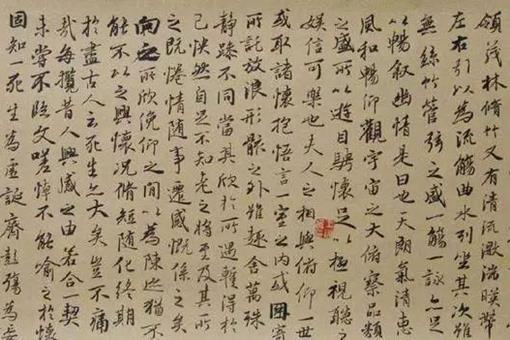 領茂林脩竹又有清流激湍暎帶
左右引以為流觴曲水列坐其次雖
無絲竹管弦之盛一觴一詠亦足
以暢敘幽情是日也天朗氣清惠
風和暢仰觀宇宙之大俯察品類
之盛所以遊目騁懷足以極視聽之
娛信可樂也夫人之相與俯仰一世
或取諸懷抱悟言一室之內或因寄
所託放浪形骸之外雖趣舍萬殊
靜躁不同當其欣於所遇暫得於
己怏然自足不知老之將至及其所
之既惓情隨事遷感慨係之矣
向之所欣俛仰之間以為陳迹猶不
能不以之興懷況脩短隨化終期
於盡古人云死生亦大矣豈不痛
哉每攬昔人興感之由若合一契
未嘗不臨文嗟悼不能喻之於懷
固知一死生為虛誕齊彭殤為妄